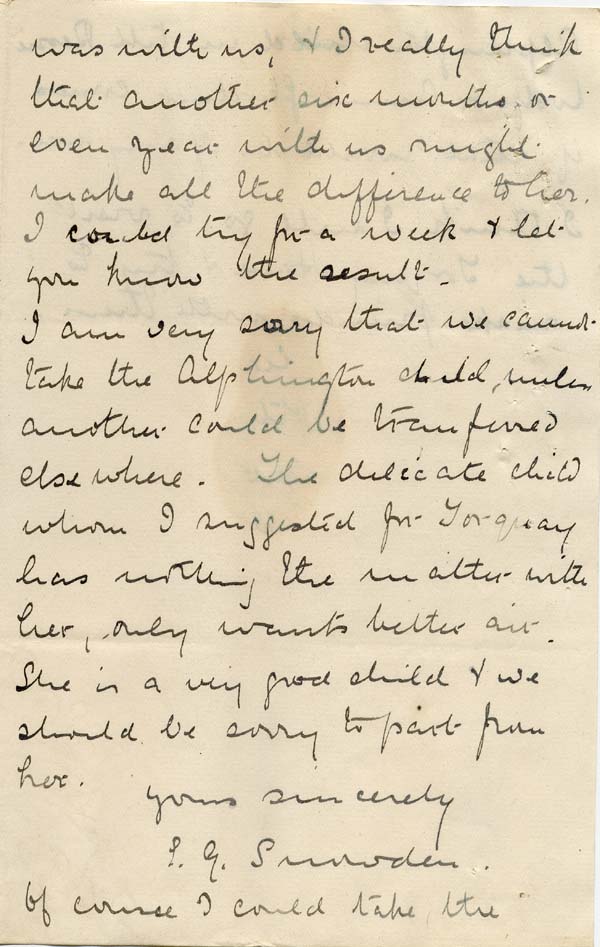 was with us, & I really think
that another six months or
even year with us might
make all the difference to her.
I could try for a week & let
you know the result.
I am very sorry that we cannot
take the Alphington child, unless
another could be transferred
elsewhere. The delicate child
whom I suggested for Torquay
has nothing the matter with
her, only wants better air.
She is a very good child & we
should be sorry to part from
her.
yours sincerely
I. G. Snowden.
Of course I could take the